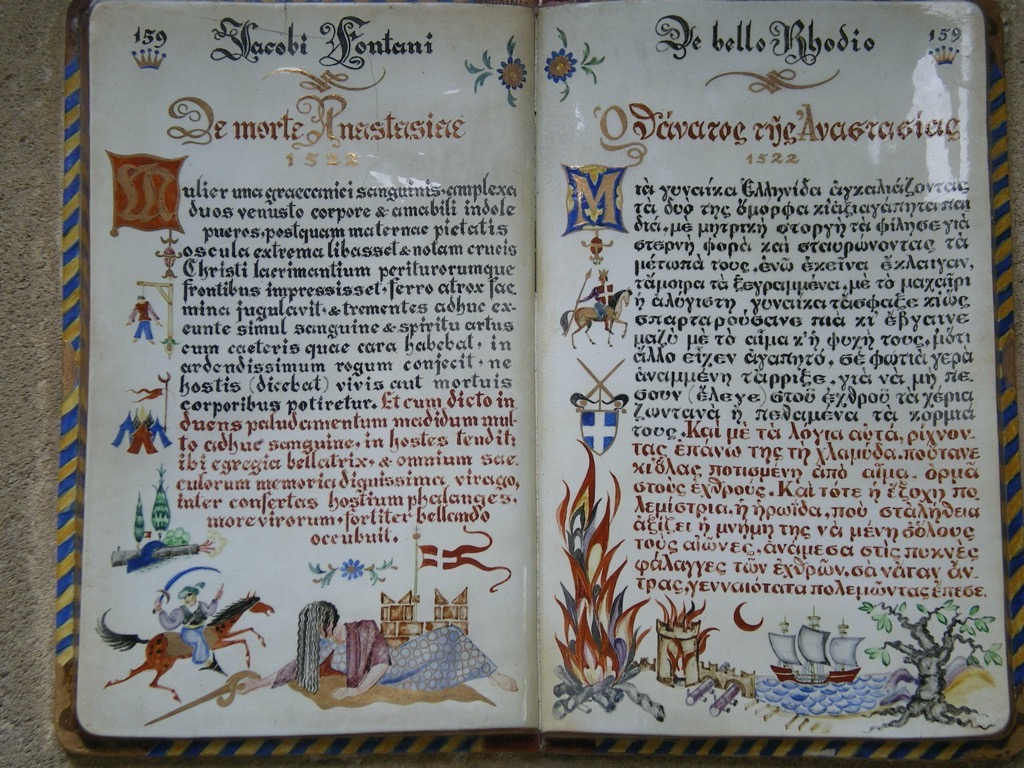 159
Jacobi Fontani
De morte Anastasiae
1522
Mulier una graecanici sanguinis, amplexa
duos venusto corpore & amabili indole
pueros, postquam maternae pietatis
oscula extrema libasset & notam crucis
Christi lacrimantium periturorumque
frontibus impressisset, ferro atrox fae-
mina jugulavit, & trementes adhuc ex-
eunte simul sanguine & spiritu artus
cum caeteris quae cara habebat, in
ardendissimum rogum conjecit, ne
hostis (dicebat) vivis aut mortuis
corporibus potiretur. Et cum dicto in
duens paludamentum madidum mul-
to adhuc sanguine, in hostes tendit;
ibi egregia bellatrix, & omnium sae-
culorum memoria dignissima virago,
inter consertas hostium phalanges,
more virorum, fortiter bellando
occubuit.
De bello Rhodio
159
Ὁ θάνατος τῆς Ἀναστασίας
1522
Μιὰ γυναίκα Ἑλληνίδα ἀγκαλιάζοντας
τὰ δυὸ της ὄμορφα κι ἀξιαγάπητα παι
διά, μὲ μητρικὴ στοργὴ τὰ φίλησε γιὰ
στερνὴ φορὰ καὶ σταυρώνοντας τὰ
μέτωπά τους, ἐνῶ ἐκεῖνα ἔκλαιγαν,
τἄμοιρα τὰ ξεγραμμένα, μὲ τὸ μαχαῖρι
ἡ ἀλύγιστη γυναίκα τἄσφαξε κι ὥς
σπαρταρούσανε πιὰ κι' ἔβγαινε
μαζὺ μὲ τὸ αἷμα κ' ἡ ψυχή τους, μ' ὅτι
ἄλλο εἶχεν ἀγαπητό, σὲ φωτιὰ γερὰ
ἀναμμένη τἄρριξε, γιὰ νὰ μὴ πέ-
σουν (ἔλεγε) στοῦ ἐχθροῦ τὰ χέρια
ζωντανὰ ἢ πεθαμένα τὰ κορμιά
τους. Καὶ μὲ τὰ λόγια αὐτά, ρίχνον-
τας ἐπάνω της τὴ χλαμύδα, ποὔτανε
κι ὅλας ποτισμένη ἀπὸ αἷμα, ὁρμᾶ
στοὺς ἐχθρούς. Καὶ τότε ἡ ἔξοχη πο-
λεμίστρια, ἡ ἡρωΐδα, ποὺ στ' ἀλήθεια
ἀξίζει ἡ μνήμη της νὰ μένη σ' ὅλους
τοὺς αἰῶνες, ἀνάμεσα στὶς πυκνὲς
φάλαγγες τῶν ἐχθρῶν, σὰ νἄταν ἄν-
τρας, γενναιότατα πολεμώντας ἔπεσε.